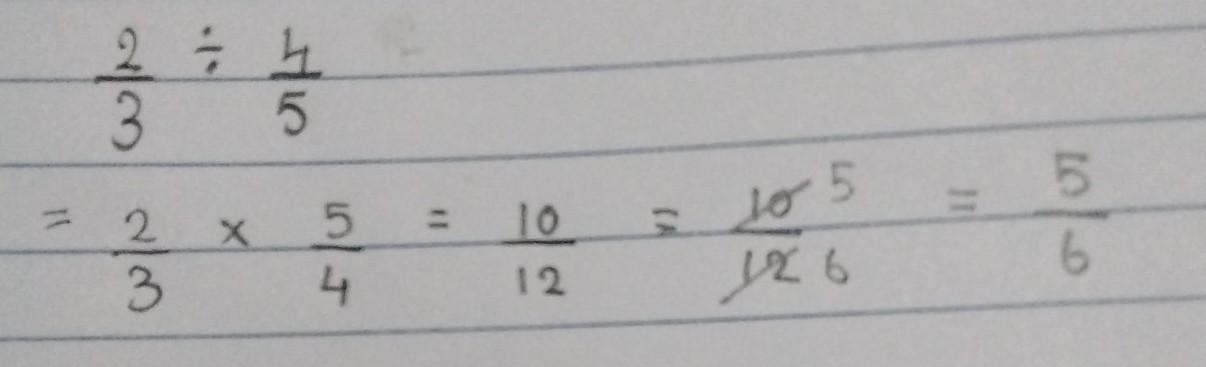 2/3 ÷ 4/5
= 2/3 × 5/4 = 10/12 = 10/12 5/6 = 5/6